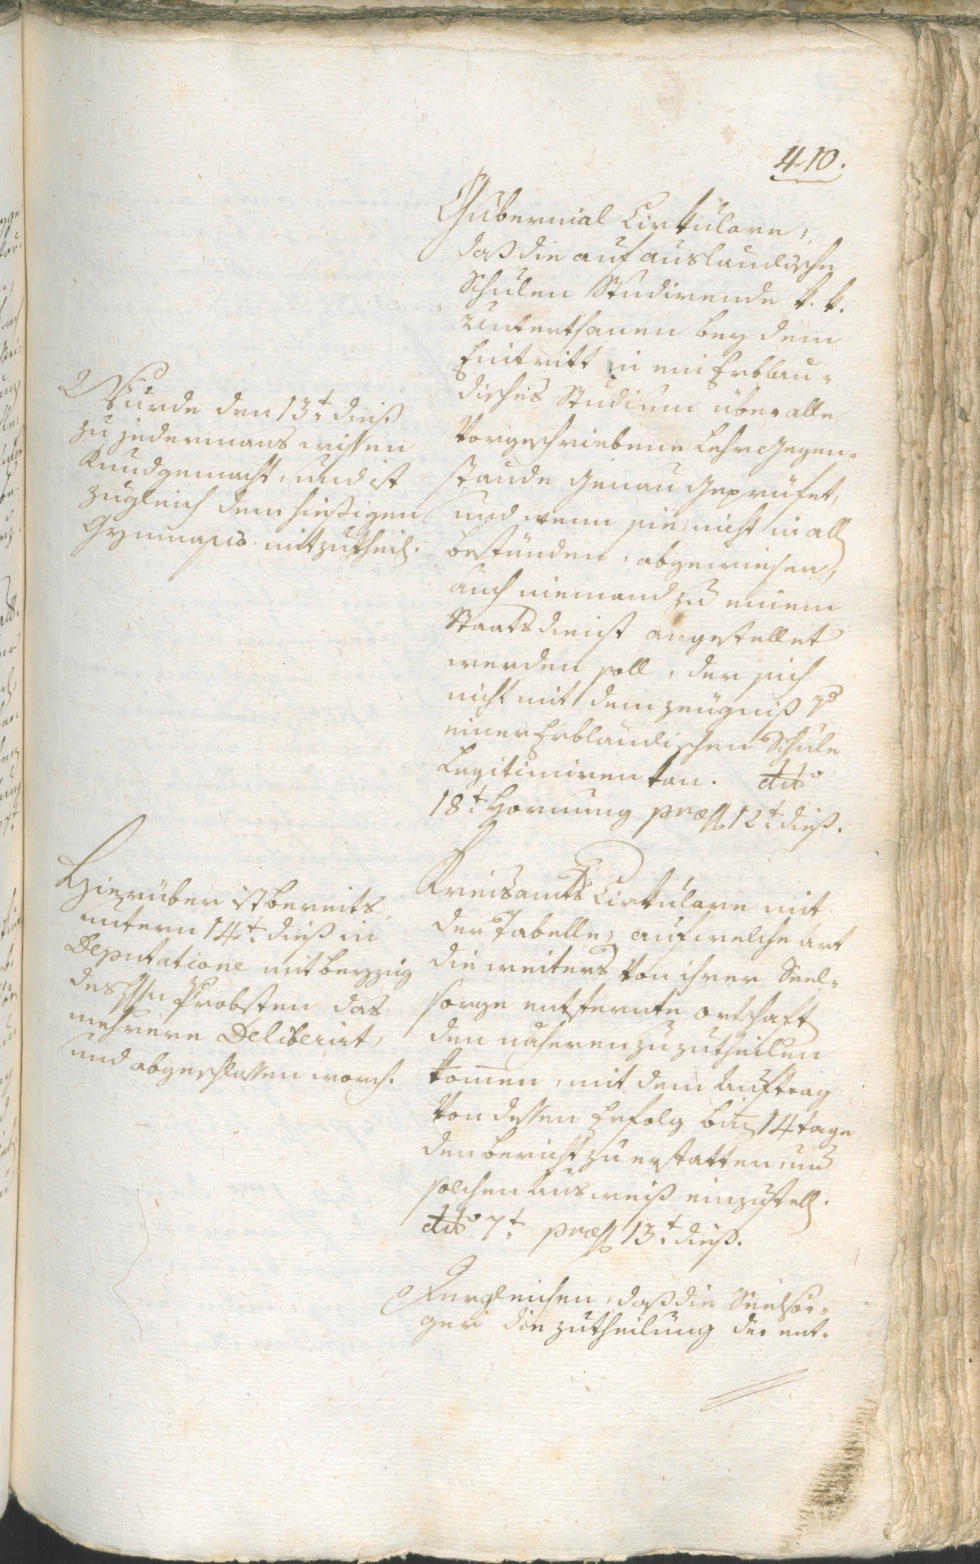 410.
Gubernial Cirkulare,
daß die auf auslandische
Schulen Studirende k. k.
Unterthanen bey dem
Eintritt in ein Erblan-
disches Studium über alle
vorgeschriebene Lehrgegen-
stande genau geprüfet,
und wenn sie nicht in all
bestünden, abgewiesen,
auch niemand zu einem
Staatsdienst angestellet
werden soll, der sich
nicht mit dem zeügniß
einer Erblandischen Schule
Legitimiren kan. dto
18t Hornung præss 12t dieß.
Wurde den 13t dieß
zu jedermans wissen
Kundgemacht, und ist
zugleich dem hiesigen
Gymnasio mitzutheil.
Kreisamts Cirkulare mit
der Tabelle, auf welche Art
die weiters von ihrer Seel-
sorge entfernte ortschaft
den naheren zuzutheilen
komen, mit dem Auftrag
von dessen Erfolg bin 14 tage
den bericht zu erstatten, und
solchen Ausweiß einzustell.
dto 7t præss 13t dieß.
Hierüber ist bereits
untern 14t dieß in
Deputatione mit beyzug
des Hn Probsten das
mehrere Deliberirt,
und abgeschlossen word.
Dergleichen, daß die Seelsor-
ger die zutheilung der ent-